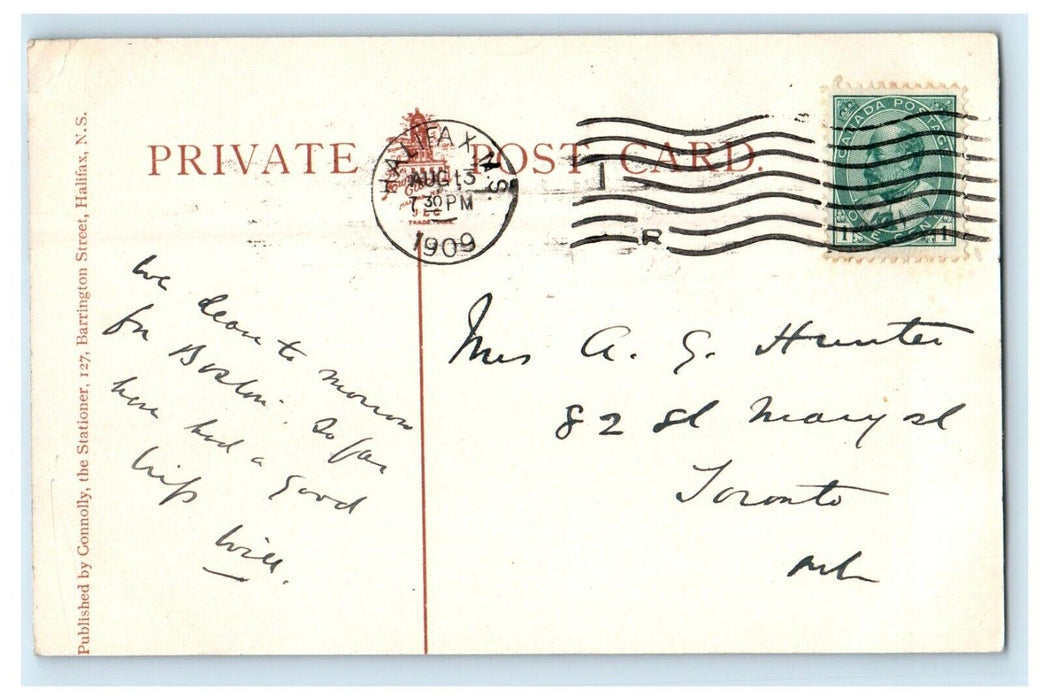 PRIVATE POST CARD.
HALIFAX, N.S.
AUG 13
7 30 PM
1909
TRADE MARK
1
R
CANADA POSTAGE
ONE CENT
1 1
Published by Connolly, the Stationer, 127, Barrington Street, Halifax, N.S.
We leave to morrow
for Boston. So far
have had a good
trip
Will.
Mrs A. G. Hunter
82 St Mary st
Toronto
Ont